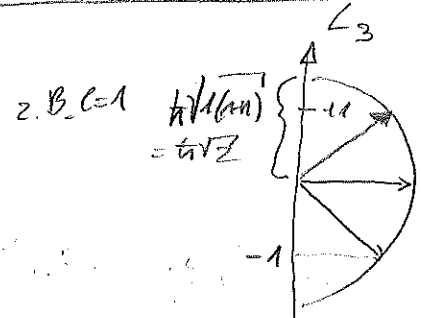 L₃
z.B. l=1 ħ√1(1+1)
= ħ√2
1
-1